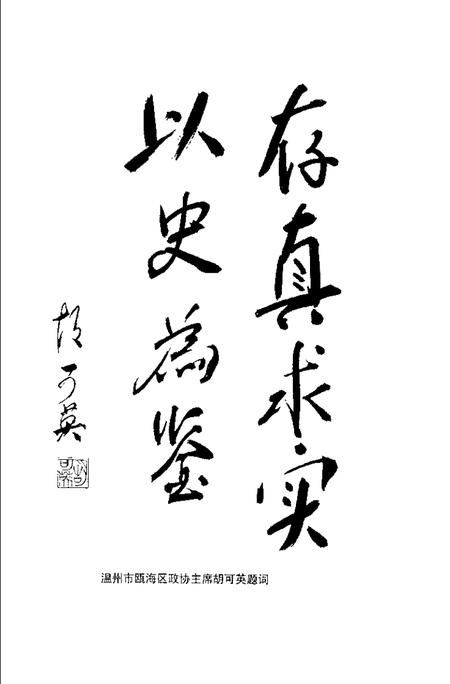 存真求实
以史為鉴
胡可英
温州市瓯海区政协主席胡可英题词